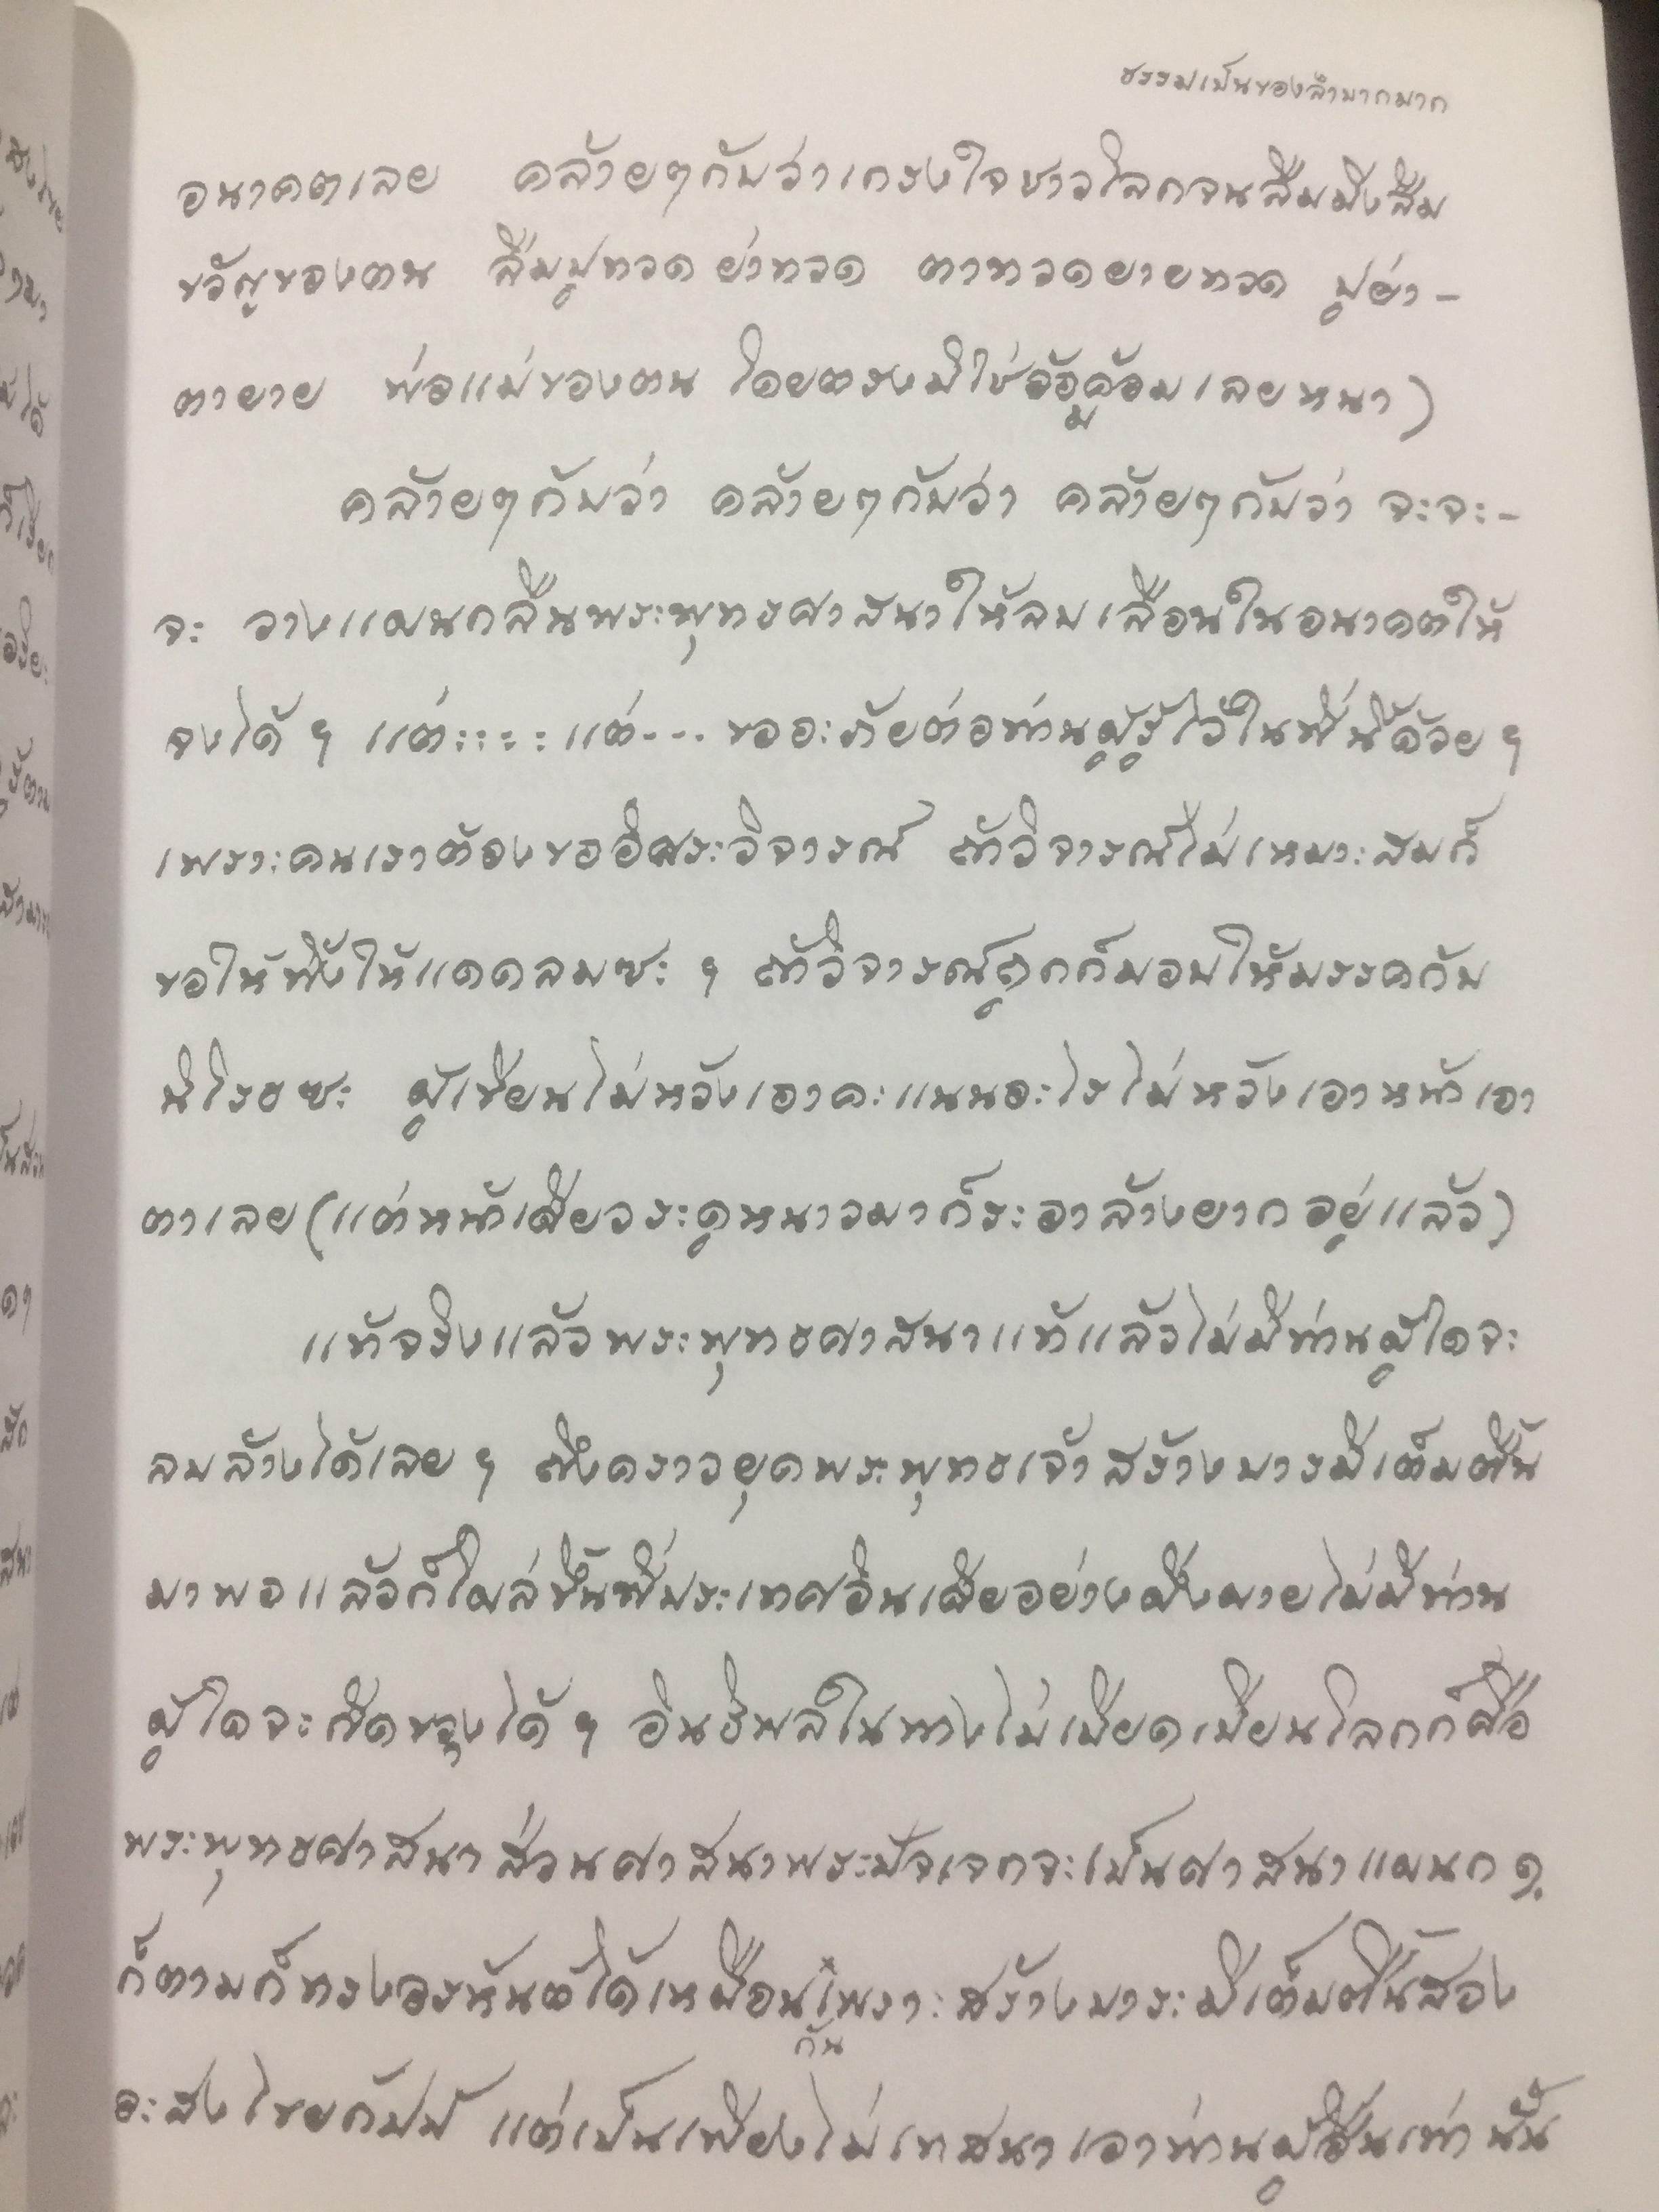 ธรรมเป็นของลำบากมาก
อนาคตเลย คล้ายๆกับว่าเกรงใจชาวโลกจนลืมมิ่งลืม
ขวัญของตน ลืมปู่ทวด ย่าทวด ตาทวดยายทวด ปู่ย่า-
ตายาย พ่อแม่ของตน โดยตรงมิใช่อ้อมเลยหนา)
คล้ายๆกับว่า คล้ายๆกับว่า คล้ายๆกับว่า จะจะ-
จะ วางแผนกลืนพระพุทธศาสนาให้ลบเลือนในอนาคตให้
จงได้ ฯ แต่::::แต่--- ขออะภัยต่อท่านผู้รู้ไว้ในที่นี้ด้วย ฯ
เพราะคนเราต้องขออิสระวิจารณ์ ถ้าวิจารณ์ไม่เหมาะสมก็
ขอให้ทิ้งให้แดดลมซะ ฯ ถ้าวิจารณ์ถูกก็มอบให้มรรคกับ
นิโรธซะ ผู้เขียนไม่หวังเอาคะแนนอะไรไม่หวังเอาหน้าเอา
ตาเลย(แต่หน้าเสียวระดูหนาวมาก็ระอาล้างยากอยู่แล้ว)
แท้จริงแล้วพระพุทธศาสนาแท้แล้วไม่มีท่านผู้ใดจะ
ลบล้างได้เลย ฯ ถึงคราวยุคพระพุทธเจ้าสร้างบารมีเต็มตื้น
มาพอแล้วก็โผล่ขึ้นที่ประเทศอินเดียอย่างผึ่งผายไม่มีท่าน
ผู้ใดจะกีดขวางได้ ฯ อิทธิพลในทางไม่เบียดเบียนโลกก็คือ
พระพุทธศาสนา ส่วนศาสนาพระปัจเจกจะเป็นศาสนาแผนก ๑.
ก็ตามก็ทรงอรหันต์ได้เหมือนกันเพราะสร้างบาระมีเต็มตื้นสอง
อะสงไขยกัปป์ แต่เป็นเพียงไม่เทสนาเอาท่านผู้อื่นเท่านั้น